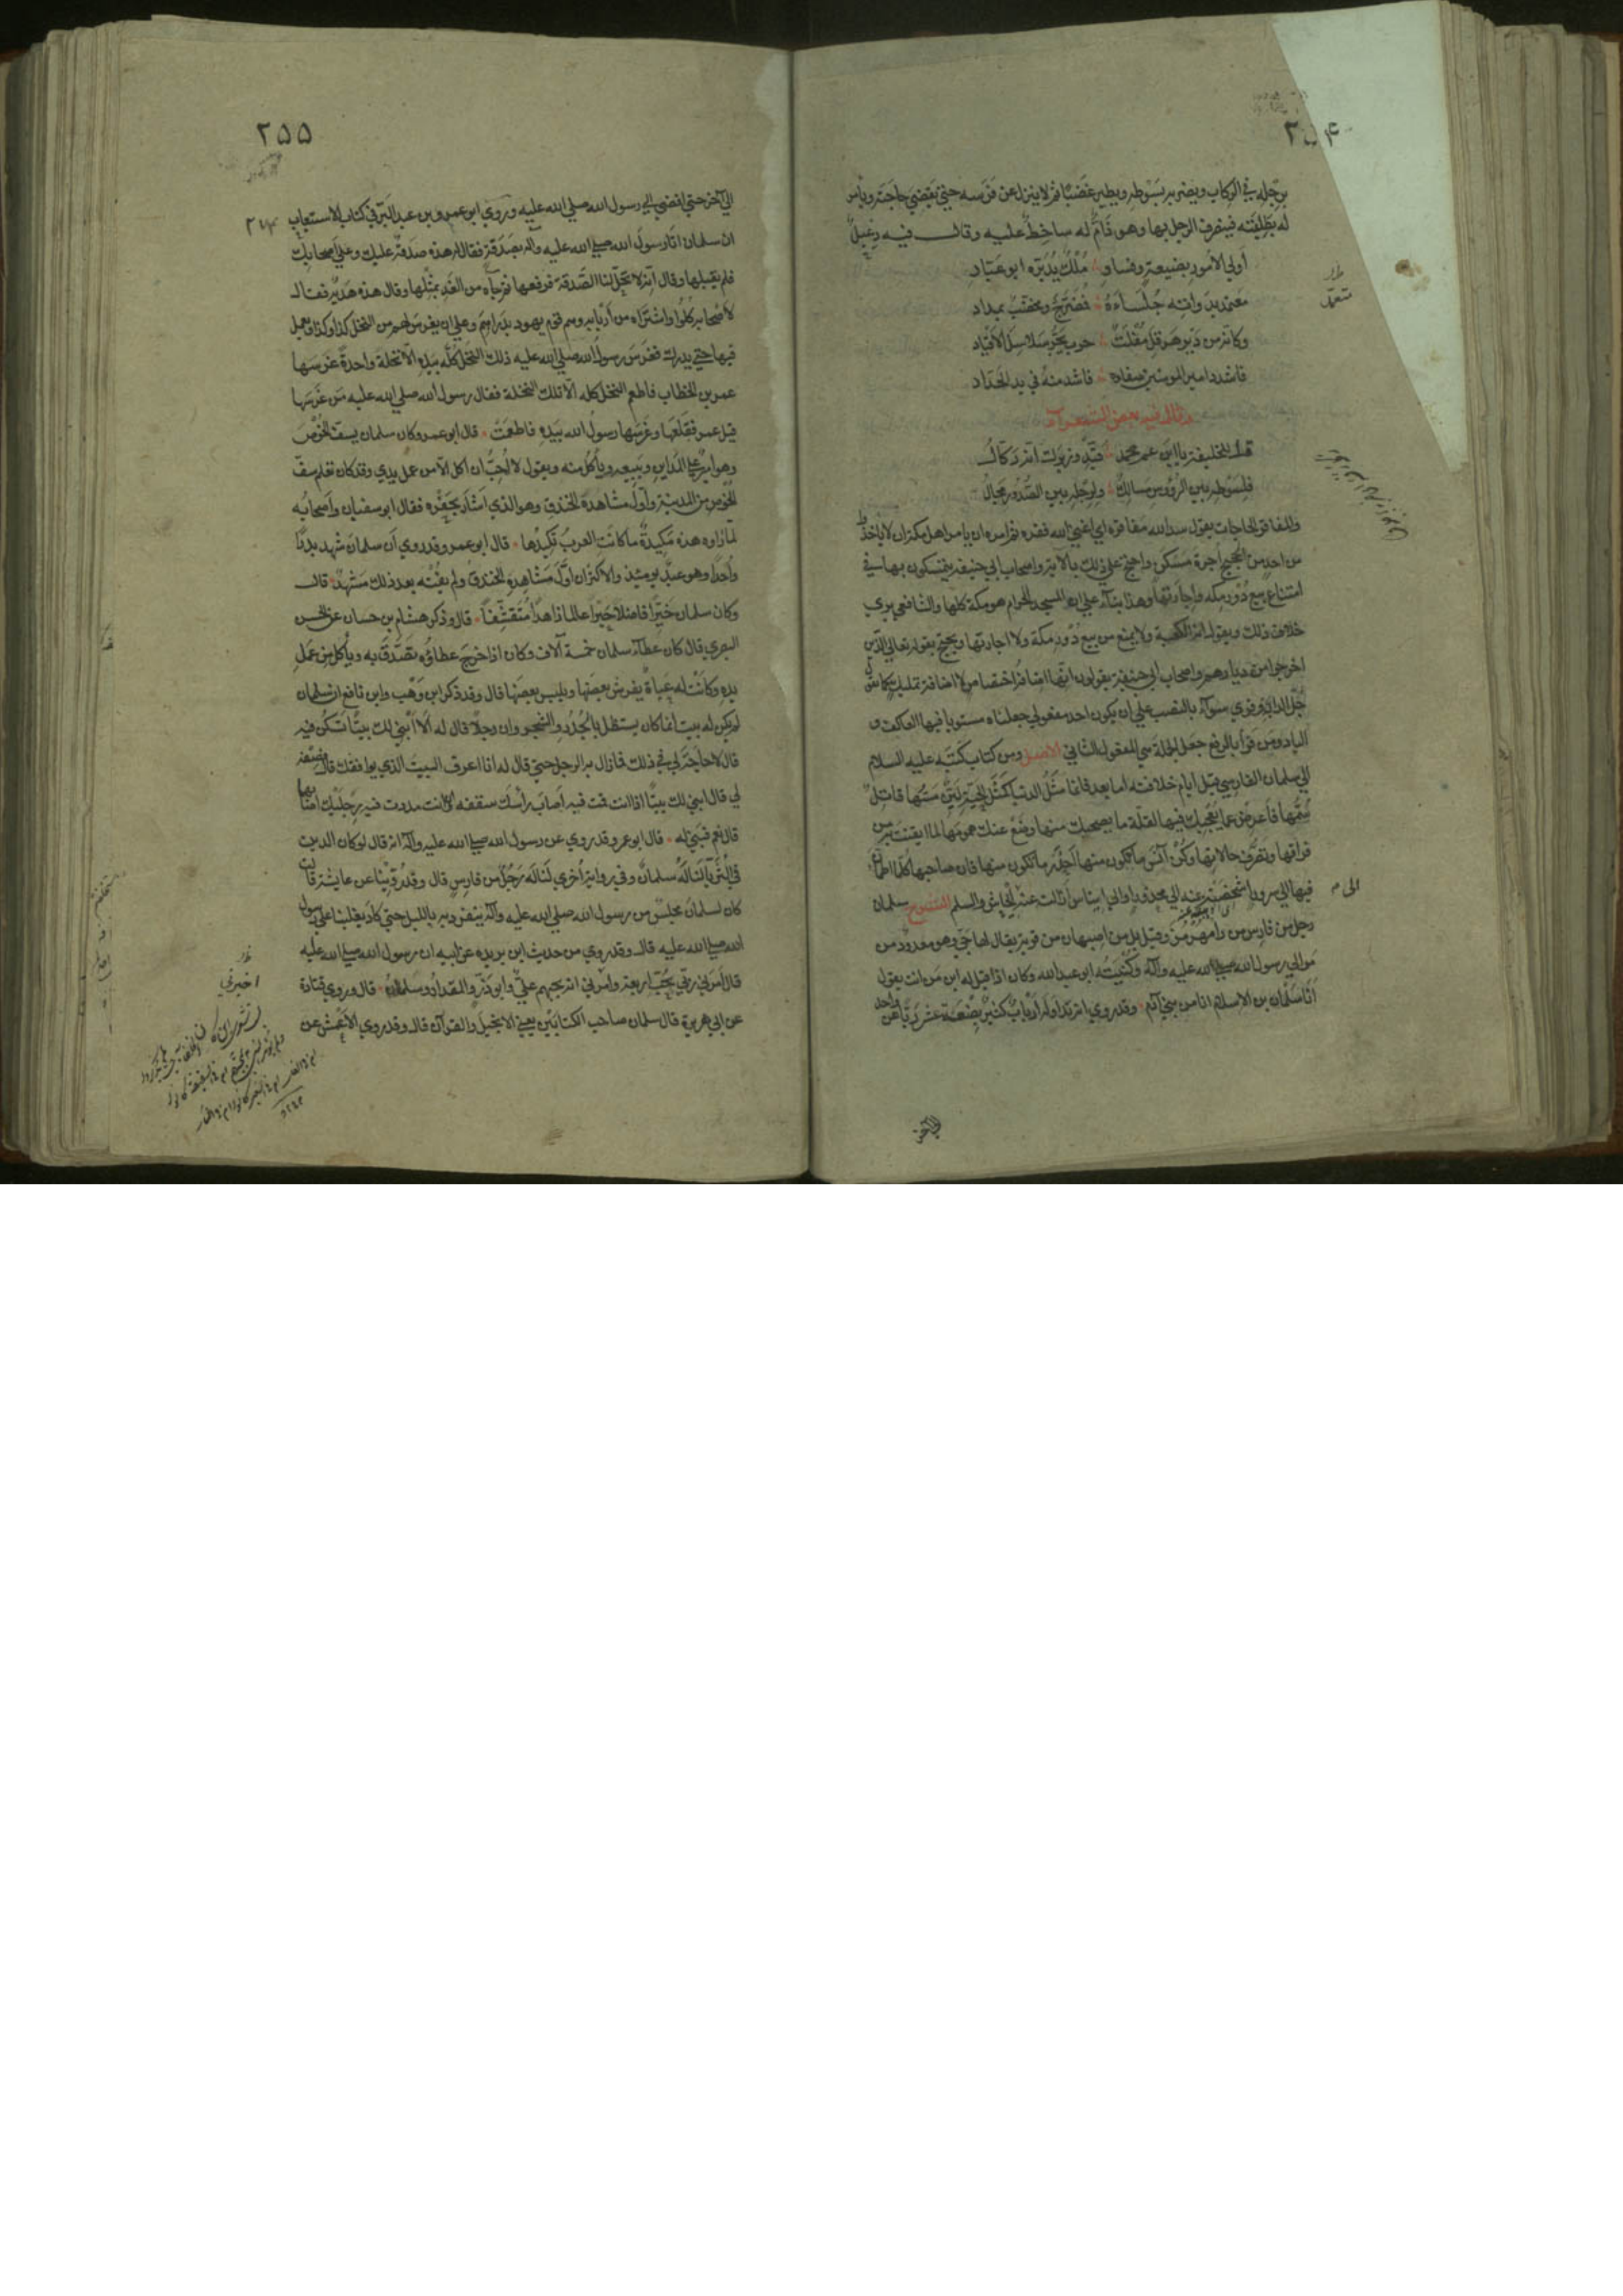 ٢٥۴
برجله في الركاب ويضربه بسوطه ويطير غضبًا ثم لا ينزل عن فرسه حتى يقضي حاجته ويأمر
له بطلبته فينصرف الرجل بها وهو ذامٌّ له ساخط عليه وقال فيه دعبل
أولى الأمور بضيعة وفساد ملك يدبره ابو عباد
متعمد بدواته جلساءه فمضرج ومخضب بمداد
وكانه من دير هرقل مفلت حرب يجر سلاسل الاقياد
فاشدد امير المومنين صفاده فاشد منه في يد الحداد
وقال فيه بعض الشعرآء
قل للخليفة يا ابن عم محمد قيد وزيرك انه ركال
فلسوطه بين الرؤوس مسالك ولرجله بين الصدور مجال
والمفاقر الحاجات يقول سد الله مفاقره اي اغنى الله فقره ثم امره ان يامر اهل مكة ان لا ياخذوا
من احد من الحجيج اجرة مسكن واحتج على ذلك بالآية واصحاب ابي حنيفة يتمسكون بها في
امتناع بيع دور مكة واجارتها وهذا بناء على ان المسجد الحرام هو مكة كلها والشافعي يرى
خلاف ذلك ويقول انه الكعبة ولا يمنع من بيع دور مكة ولا اجارتها ويحتج بقوله تعالى الذين
اخرجوا من ديارهم واصحاب ابي حنيفة يقولون انها اضافة اختصاص لا اضافة تمليك كما تقول
جُلّ الدابة وقرئ سوآء بالنصب على ان يكون احد مفعولي جعلناه مستويا فيه العاكف و
الباد ومن قرأ بالرفع جعل الجملة هي المفعول الثاني الاصل ومن كتاب كتبه عليه السلام
الى سلمان الفارسي قبل أيام خلافته اما بعد فانما مثل الدنيا كمثل الحية لين مسها قاتل
سمها فاعرض عما يعجبك فيها لقلة ما يصحبك منها وضع عنك همومها لما ايقنت به من
فراقها وتصرف حالاتها وكن آنس ما تكون منها احذر ما تكون منها فان صاحبها كلما اطمأن
فيها الى سرور اشخصته عنه الى محذور او الى ايناس ازالته عنه الى ايحاش والسلم الشرح سلمان
رجل من فارس من رامهرمز وقيل بل من اصبهان من قرية يقال لها جي وهو معدود من
موالي رسول الله صلى الله عليه وآله وكنيته ابو عبد الله وكان اذا قيل له ابن من انت يقول
انا سلمان بن الاسلام انا من بني آدم وقد روي انه تداوله ارباب كثير بضعة عشر ربا من واحد
الى آخر
٢٥٥
الى آخر حتى افضى الى رسول الله صلى الله عليه وروى ابو عمر بن عبد البر في كتاب الاستيعاب
ان سلمان اتى رسول الله صلى الله عليه وآله بصدقة فقال له هذه صدقة عليك وعلى اصحابك
فلم يقبلها وقال انه لا تحل لنا الصدقة فرفعها ثم جاء من الغد بمثلها وقال هذه هدية فقال
لاصحابه كلوا واشتراه من اربابه وهم قوم يهود بدراهم وعلى ان يغرس لهم من النخل كذا وكذا ويعمل
فيها حتى يدرك فغرس رسول الله صلى الله عليه ذلك النخل كله بيده الا نخلة واحدة غرسها
عمر بن الخطاب فاطعم النخل كله الا تلك النخلة فقال رسول الله صلى الله عليه من غرسها
قيل عمر فقلعها وغرسها رسول الله بيده فاطعمت قال ابو عمر وكان سلمان يسف الخوص
وهو امير على المداين ويبيعه ويأكل منه ويقول لا أحب ان اكل الا من عمل يدي وقد كان تعلم سف
الخوص من المدينة واول مشاهده الخندق وهو الذي اشار بحفره فقال ابو سفيان واصحابه
لما راوه هذه مكيدة ما كانت العرب تكيدها قال ابو عمر وقد روي أن سلمان شهد بدرًا
واحدا وهو عبد يومئذ والاكثر ان اول مشاهده الخندق ولم يفته بعد ذلك مشهد قال
وكان سلمان خيرا فاضلا حبرا عالما زاهدا متقشفا قال وذكر هشام بن حسان عن الحسن
البصري قال كان عطآء سلمان خمسة آلاف وكان اذا خرج عطاؤه تصدق به ويأكل من عمل
يده وكانت له عباءة يفرش بعضها ويلبس بعضها قال وقد ذكر ابن وهب وابن نافع ان سلمان
لم يكن له بيت انما كان يستظل بالجدر والشجر وان رجلا قال له ألا ابني لك بيتا تسكن فيه
قال لا حاجة لي في ذلك فما زال به الرجل حتى قال له انا اعرف البيت الذي يوافقك قال فصفه
لي قال ابني لك بيتًا اذا انت قمت فيه اصاب رأسك سقفه وان انت مددت فيه رجليك اصابهما
قال نعم فبنى له قال ابو عمر وقد روي عن رسول الله صلى الله عليه وآله انه قال لو كان الدين
في الثريا لناله سلمان وفي رواية أخرى لناله رجل من فارس قال وقد روينا عن عايشة قالت
كان لسلمان مجلس من رسول الله صلى الله عليه وآله ينفرد به بالليل حتى كاد يغلبنا على رسول
الله صلى الله عليه قال وقد روي من حديث ابن بريده عن ابيه ان رسول الله صلى الله عليه
قال أمرني ربي بحب اربعة وأمرني انه يحبهم علي وابو ذر والمقداد وسلمان قال وروى قتادة
عن ابي هريرة قال سلمان صاحب الكتابين يعني الانجيل والقرآن قال وقد روى الاعمش عن